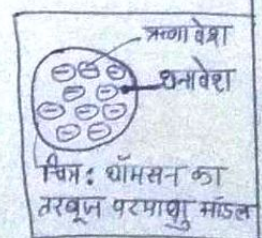 ऋणावेश
धनावेश
चित्र: थॉमसन का
तरबूज परमाणु मॉडल